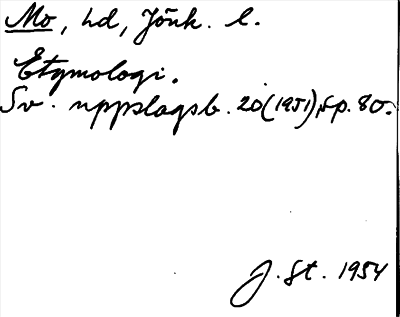 Mo, hd, Jönk. l.
Etymologi.
Sv. uppslagsb. 20 (1951), sp. 80.
J. St. 1954